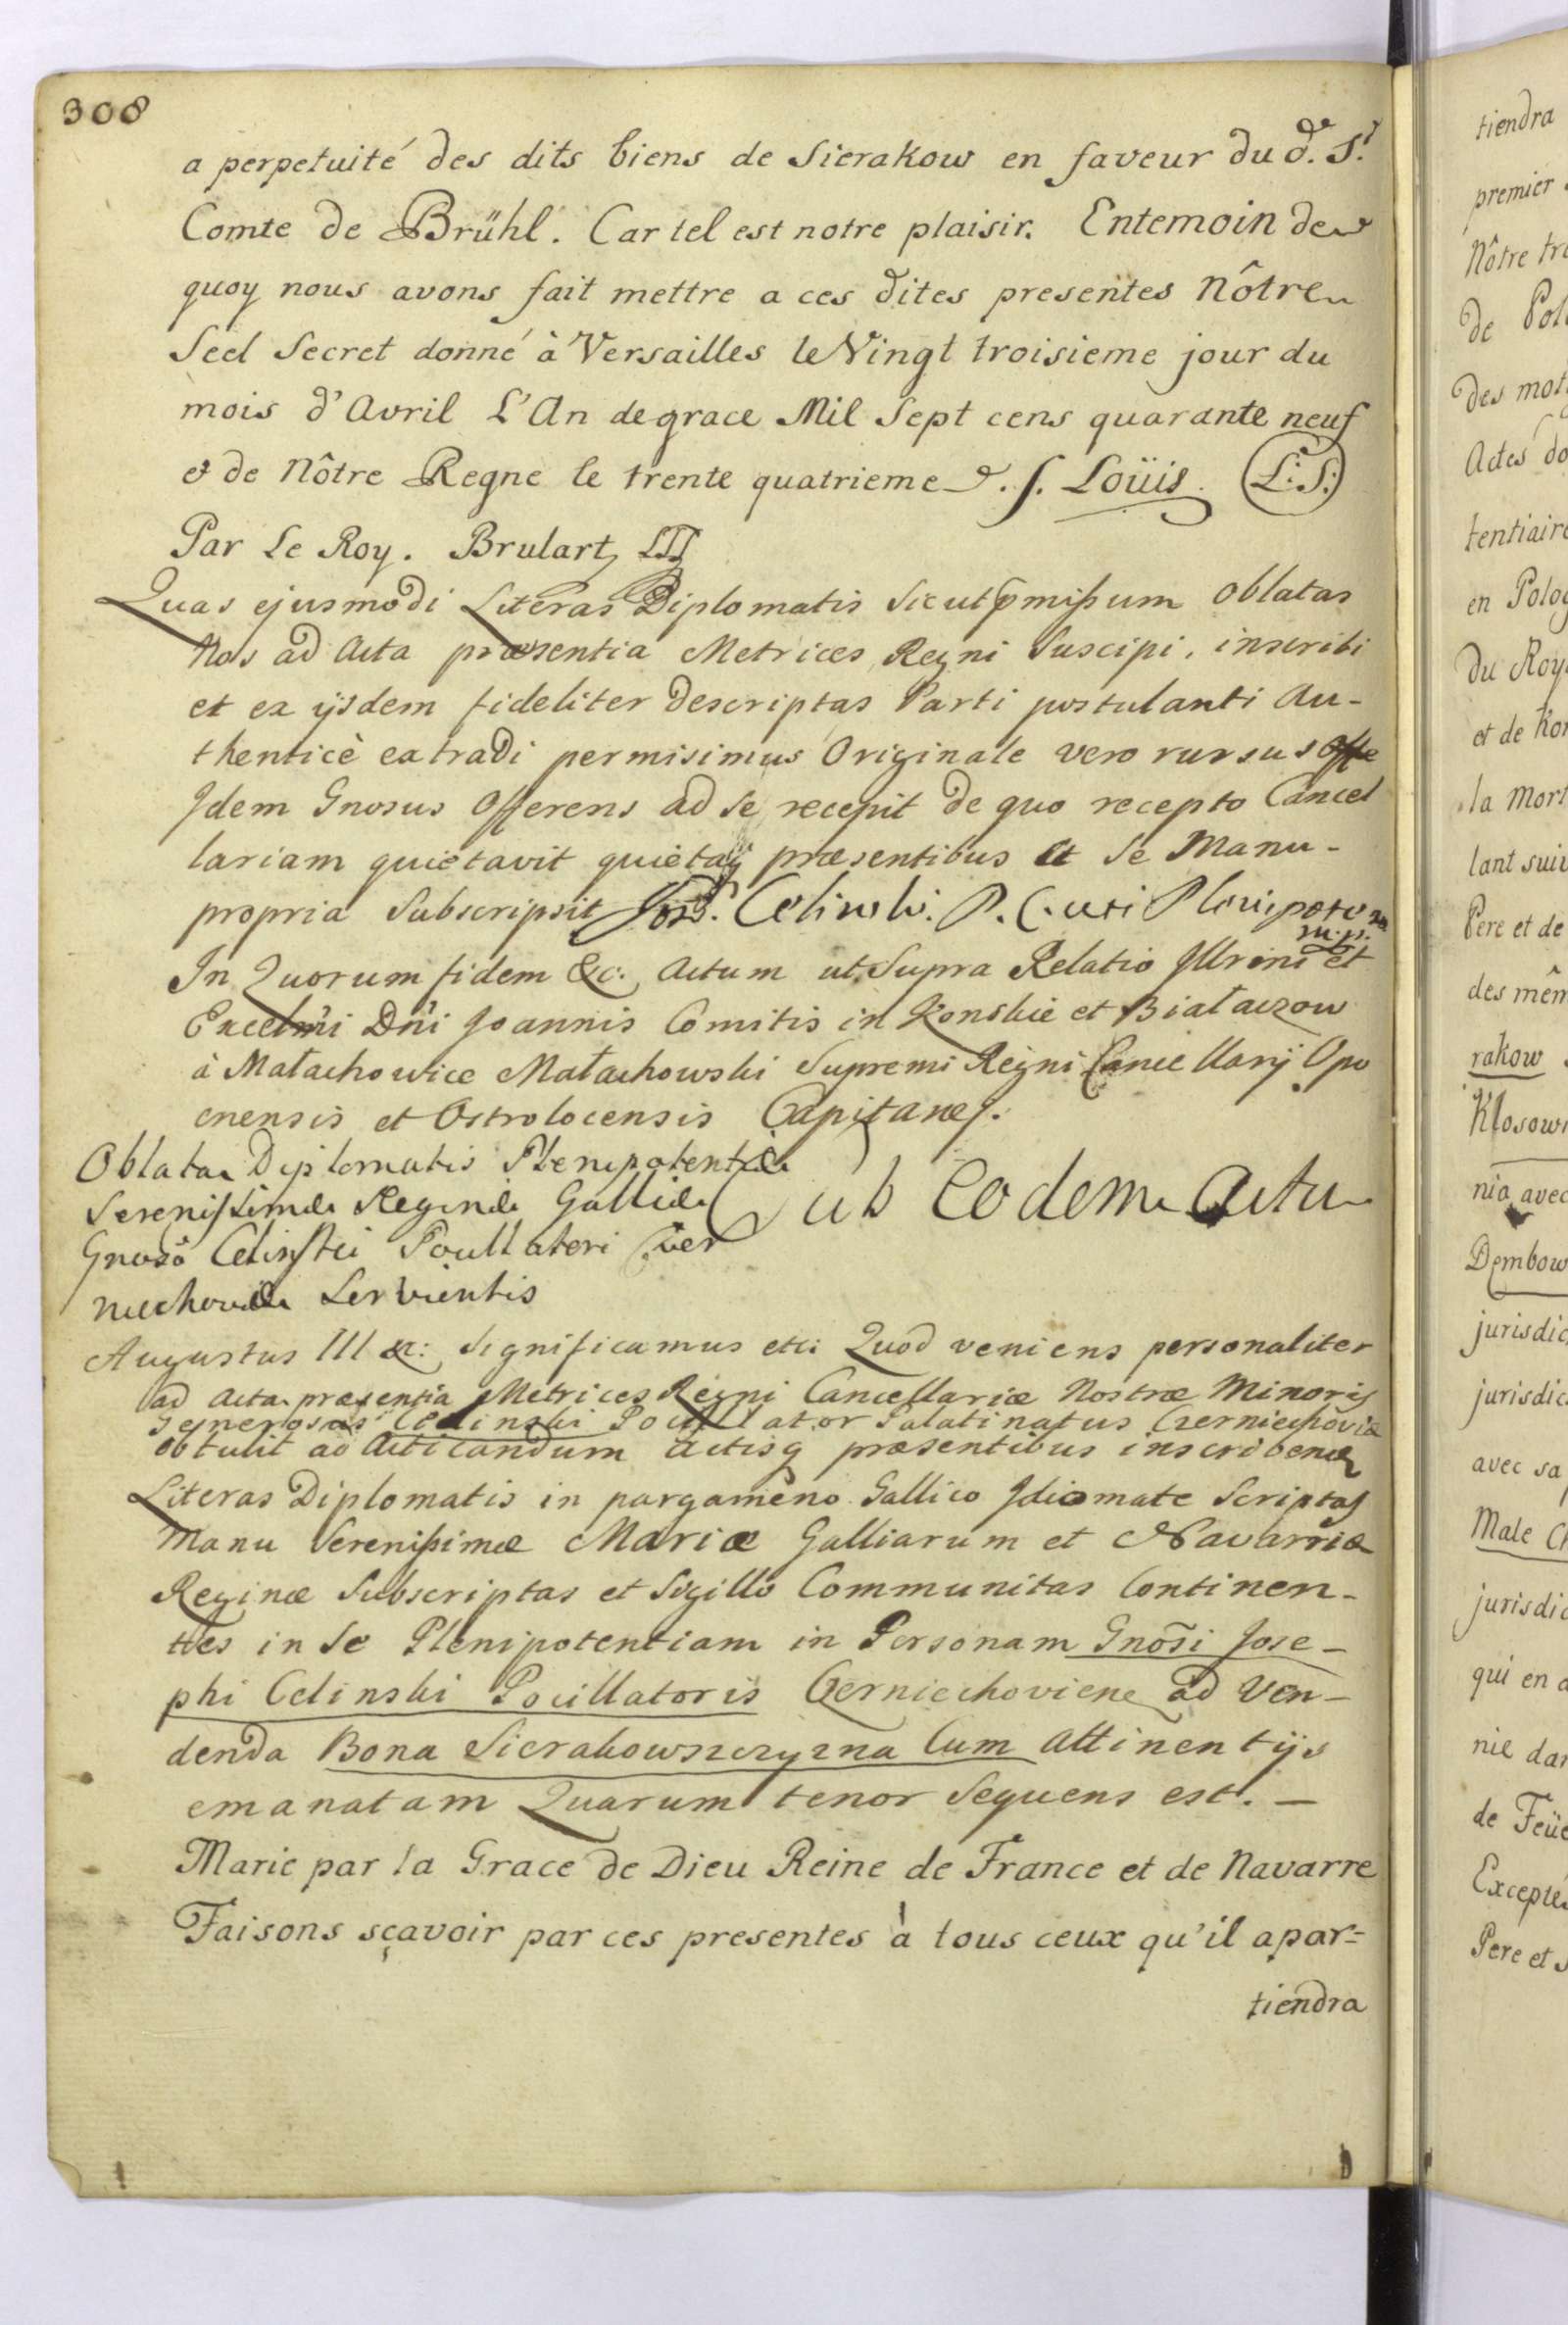 308
a perpetuité des dits biens de Sierakow en faveur du d. Sr.
Comte de Brühl. Car tel est notre plaisir. Entemoin de
quoy nous avons fait mettre a ces dites presentes Nôtre
Seel Secret donné à Versailles le Vingt troisieme jour du
mois d'Avril L'An de grace Mil Sept cens quarante neuf
et de Nôtre Regne le trente quatrieme. s. Loüis. L:S:
Par Le Roy. Brulart
Quas ejusmodi Literas Diplomatis Sicut pmißum Oblatas
Nos ad Acta præsentia Metrices Regni Suscipi, inscribi
et ex ijsdem fideliter Descriptas Parti postulanti Au-
thenticè extradi permisimus Originale vero rursus
Idem Gnosus Offerens ad Se recepit de quo recepto Cancel
lariam quietavit quietatq præsentibus et Se Manu-
propria Subscripsit Celinski. P. C.
m.p.
In Quorum fidem &c. Actum ut Supra Relatio Illrmi et
Excelmi Dñi Joannis Comitis in Konskie et Białaczow
à Małachowice Małachowski Supremi Regni Cancellarij Opo
cnensis et Ostrolocensis Capitanej.
Oblata Diplomatis Plenipotentiæ
Serenissimæ Reginæ Galliæ
Gnoso Celinski Pocillatori Czer
niechoviæ Servientis
Sub Eodem Actu
Augustus III &c: Significamus etc: Quod veniens personaliter
ad Acta præsentia Metrices Regni Cancellariæ Nostræ Minoris
Generosus Celinski Pocillator Palatinatus Czerniechoviæ
obtulit ad Acticandum Actisq præsentibus inscribend
Literas Diplomatis in pargameno Gallico Idiomate Scriptas
Manu Serenißimæ Mariæ Galliarum et Navarriæ
Reginæ Subscriptas et Sigillo Communitas Continen-
tes in Se Plenipotentiam in Personam Gnosi Jose-
phi Celinski Pocillatoris Czerniechoviene ad Ven-
denda Bona Sierakowszczyzna Cum Attinentijs
emanatam Quarum tenor Sequens est. -
Marie par la Grace de Dieu Reine de France et de Navarre
Faisons sçavoir par ces presentes à tous ceux qu'il apar=
tiendra
tiendra
premier
Nôtre
de
des
Actes
tentiaire
en
du
et de
la
lant
Pere et de
des
rakow
nia avec
jurisdic
jurisdic
avec sa
Male
jurisdic
qui en
nie
de
Exceptés
Pere et